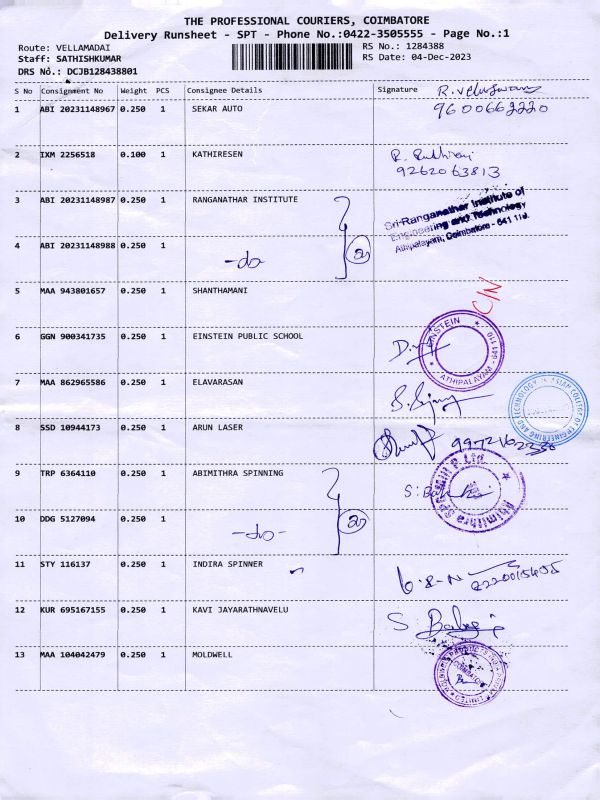 THE PROFESSIONAL COURIERS, COIMBATORE
Delivery Runsheet - SPT - Phone No.:0422-3505555 - Page No.:1
Route: VELLAMADAI
RS No.: 1284388
Staff: SATHISHKUMAR
RS Date: 04-Dec-2023
DRS No.: DCJB128438801
S No Consignment No Weight PCS Consignee Details Signature
1 ABI 20231148967 0.250 1 SEKAR AUTO
9600662220
2 IXM 2256518 0.100 1 KATHIRESEN
9262063813
3 ABI 20231148987 0.250 1 RANGANATHAR INSTITUTE
Sri Ranganathar Institute of
Engineering and Technology
Athipalayam, Coimbatore - 641 110.
4 ABI 20231148988 0.250 1
-do-
5 MAA 943801657 0.250 1 SHANTHAMANI
C/N
6 GGN 900341735 0.250 1 EINSTEIN PUBLIC SCHOOL
EINSTEIN
ATHIPALAYAM
7 MAA 862965586 0.250 1 ELAVARASAN
8 SSD 10944173 0.250 1 ARUN LASER
9 TRP 6364110 0.250 1 ABIMITHRA SPINNING
Abimithra Spinning Mill P Ltd
10 DDG 5127094 0.250 1
-do-
11 STY 116137 0.250 1 INDIRA SPINNER
12 KUR 695167155 0.250 1 KAVI JAYARATHNAVELU
S Babuji
13 MAA 104042479 0.250 1 MOLDWELL